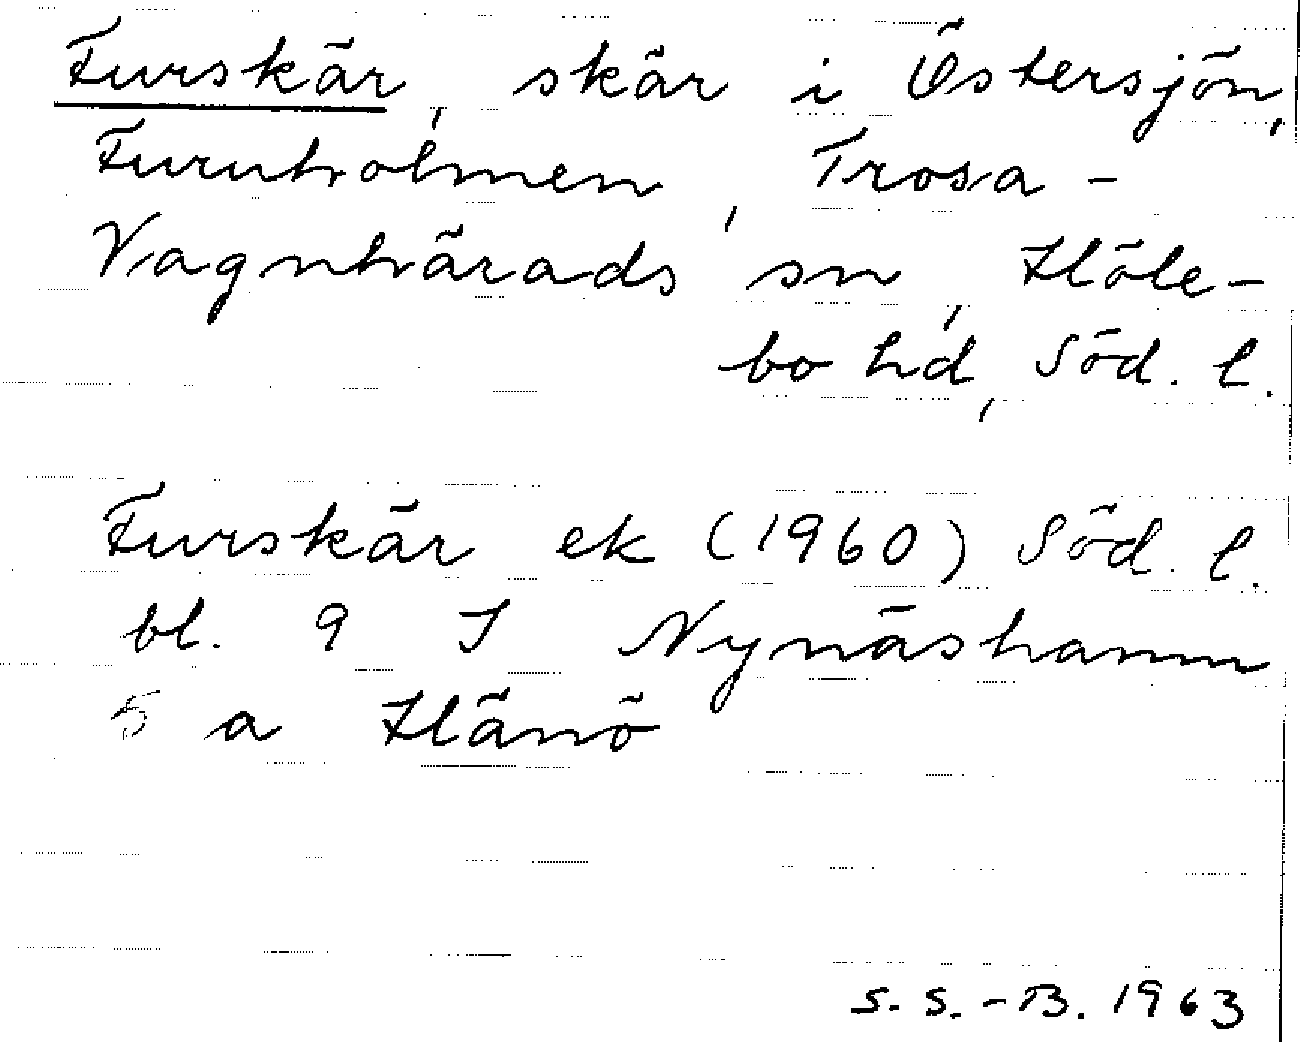 Furskär, skär i Östersjön,
Furuholmen, Trosa-
Vagnhärads sn, Höle-
bo hd, Söd. l.
Furskär ek (1960) Söd. l.
bl. 9 I Nynäshamn
5 a Hänö
S. S.-B. 1963